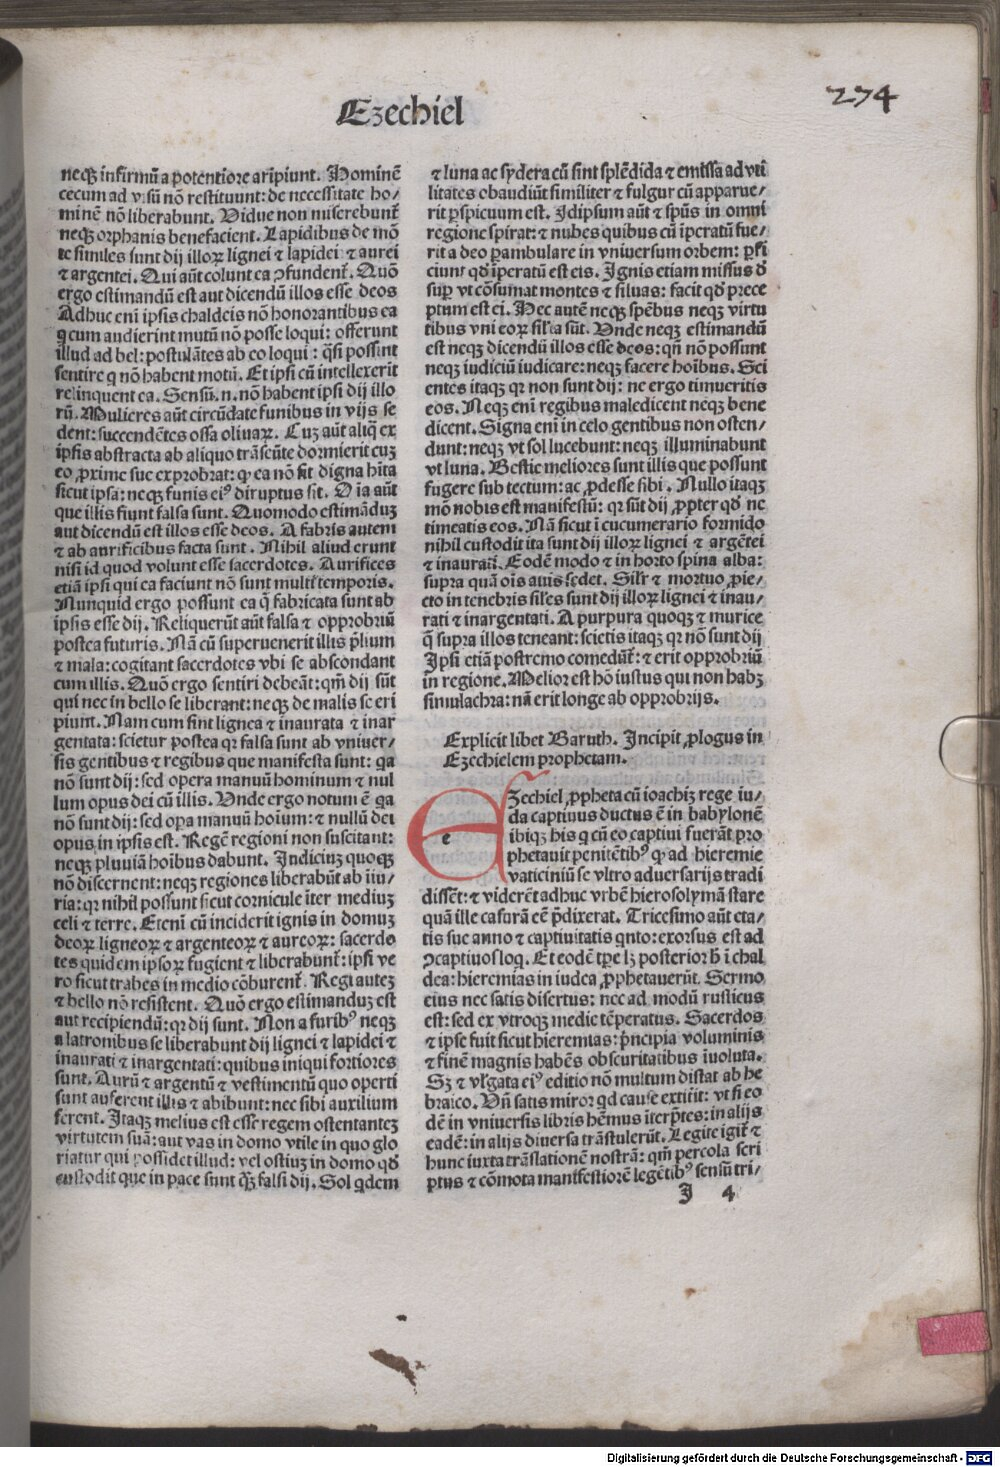 Ezechiel
274
neqꝫ infirmũ a potentiore aripiunt. Hominẽ
cecum ad visũ nõ restituunt: de necessitate ho/
minẽ nõ liberabunt. Vidue non miserebunt̃
neqꝫ orphanis benefacient. Lapidibus de mõ
te similes sunt dij illoꝝ lignei ⁊ lapidei ⁊ aurei
⁊ argentei. Qui aũt colunt ea ꝯfundent̃. Quõ
ergo estimandũ est aut dicendũ illos esse deos
Adhuc enĩ ipsis chaldeis nõ honorantibus ea
q cum audierint mutũ nõ posse loqui: offerunt
illud ad bel: postulãtes ab eo loqui: q̃si possint
sentire q nõ habent motũ. Et ipsi cũ intellexerit
relinquent ea. Sensũ .n. nõ habent ipsi dij illo
rũ. Mulieres aũt circũdate funibus in vijs se
dent: succendẽtes ossa olivaꝝ. Cuꝫ aũt aliq̃ ex
ipsis abstracta ab aliquo trãseũte dormierit cuꝫ
eo ꝓxime sue exprobrat: ꝙ ea nõ sit digna hĩta
sicut ipsa: neqꝫ funis eiꝰ diruptus sit. Oĩa aũt
que illis fiunt falsa sunt. Quomodo estimãduꝫ
aut dicendũ est illos esse deos. A fabris autem
⁊ ab aurificibus facta sunt. Nihil aliud erunt
nisi id quod volunt esse sacerdotes. Aurifices
etiã ipsi qui ea faciunt nõ sunt multi temporis.
Nunquid ergo possunt ea q̃ fabricata sunt ab
ipsis esse dij. Reliquerũt aũt falsa ⁊ opprobriũ
postea futuris. Nã cũ supervenerit illis p̃lium
⁊ mala: cogitant sacerdotes vbi se abscondant
cum illis. Quõ ergo sentiri debeãt: qm̃ dij sũt
qui nec in bello se liberant: neqꝫ de malis se eri
piunt. Nam cum sint lignea ⁊ inaurata ⁊ inar
gentata: scietur postea qꝛ falsa sunt ab vniver/
sis gentibus ⁊ regibus que manifesta sunt: qa
nõ sunt dij: sed opera manuũ hominum ⁊ nul
lum opus dei cũ illis. Vnde ergo notum ẽ qa
nõ sunt dij: sed oꝑa manuũ hoium: ⁊ nullũ dei
opus in ipsis est. Regẽ regioni non suscitant:
neqꝫ pluviã hoĩbus dabunt. Iudiciuꝫ quoqꝫ
nõ discernent: neqꝫ regiones liberabũt ab iiu/
ria: qꝛ nihil possunt sicut cornicule iter mediuꝫ
celi ⁊ terre. Etenĩ cũ inciderit ignis in domuꝫ
deoꝝ ligneoꝝ ⁊ argenteoꝝ ⁊ aureoꝝ: sacerdo
tes quidem ipsoꝝ fugient ⁊ liberabunt̃: ipsi ve
ro sicut trabes in medio cõburent̃. Regi auteꝫ
⁊ bello nõ resistent. Quõ ergo estimanduꝫ est
aut recipiendũ: qꝛ dij sunt. Non a furibꝰ neqꝫ
a latronibus se liberabunt dij lignei ⁊ lapidei ⁊
inaurati ⁊ inargentati: quibus iniqui fortiores
sunt. Aurũ ⁊ argentũ ⁊ vestimentũ quo operti
sunt auferent illis ⁊ abibunt: nec sibi auxilium
ferent. Itaqꝫ melius est esse regem ostentanteꝫ
virtutem suã: aut vas in domo vtile in quo glo
riatur qui possidet illud: vel ostiuꝫ in domo qđ
custodit que in pace sunt q̃ꝫ falsi dij. Sol qdem
⁊ luna ac sydera cũ sint splẽdida ⁊ emissa ad vti
litates obaudiũt similiter ⁊ fulgur cũ apparue/
rit ꝑspicuum est. Idipsum aũt ⁊ spũs in omni
regione spirat: ⁊ nubes quibus cũ iperatũ fue/
rit a deo ꝑambulare in vniversum orbem: ꝑfi
ciunt qđ iperatũ est eis. Ignis etiam missus đ
suꝑ vt cõsumat montes ⁊ silvas: facit qđ prece
ptum est ei. Hec autẽ neqꝫ spẽbus neqꝫ virtu
tibus vni eoꝝ sil̃ia sũt. Vnde neqꝫ estimandũ
est neqꝫ dicendũ illos esse deos: qñ nõ possunt
neqꝫ iudiciũ iudicare: neqꝫ facere hoĩbus. Sci
entes itaqꝫ qꝛ non sunt dij: ne ergo timueritis
eos. Neqꝫ enĩ regibus maledicent neqꝫ bene
dicent. Signa enĩ in celo gentibus non osten/
dunt: neqꝫ vt sol lucebunt: neqꝫ illuminabunt
vt luna. Bestie meliores sunt illis que possunt
fugere sub tectum: ac ꝓdesse sibi. Nullo itaqꝫ
mõ nobis est manifestũ: qꝛ sũt dij ꝓpter qđ ne
timeatis eos. Nã sicut i cucumerario formido
nihil custodit ita sunt dij illoꝝ lignei ⁊ argẽtei
⁊ inaurati. Eodẽ modo ⁊ in horto spina alba:
supra quã oĩs avis sedet. Sil̃r ⁊ mortuo ꝓie/
cto in tenebris sil̃es sunt dij illoꝝ lignei ⁊ inau/
rati ⁊ inargentati. A purpura quoqꝫ ⁊ murice
q̃ supra illos teneant: scietis itaqꝫ qꝛ nõ sunt dij
Ipsi etiã postremo comedũt̃: ⁊ erit opprobriũ
in regione. Melior est hõ iustus qui non habꝫ
simulachra: nã erit longe ab opprobrijs.
Explicit liber Baruth. Incipit ꝓlogus in
Ezechielem prophetam.
EZechiel ꝓpheta cũ ioachiꝫ rege iu/
da captivus ductus ẽ in babylonẽ
ibiqꝫ his q cũ eo captivi fuerãt pro
phetavit penitẽtibꝰ ꝙ ad hieremie
vaticiniũ se vltro adversarijs tradi
dissẽt: ⁊ viderẽt adhuc vrbẽ hierosolymã stare
quã ille casurã eẽ p̃dixerat. Tricesimo aũt eta/
tis sue anno ⁊ captivitatis qnto: exorsus est ad
ꝯcaptivos loq. Et eodẽ tꝑe lꝫ posterior h̃ i chal
dea: hieremias in iudea ꝓphetaverũt. Sermo
eius nec satis disertus: nec ad modũ rusticus
est: sed ex vtroqꝫ medie tẽperatus. Sacerdos
⁊ ipse fuit sicut hieremias: p̃ncipia voluminis
⁊ finẽ magnis habẽs obscuritatibus ivoluta.
Sꝫ ⁊ vl̃gata eiꝰ editio nõ multum distat ab he
braico. Vñ satis miror qd cause extitit: vt si eo
dẽ in vniversis libris hẽmus iterp̃tes: in alijs
eadẽ: in alijs diversa trãstulerũt. Legite igit̃ ⁊
hunc iuxta trãslationẽ nostrã: qm̃ per cola scri
ptus ⁊ cõmota manifestiorẽ legẽtibꝰ sensũ tri/
I 4
Digitalisierung gefördert durch die Deutsche Forschungsgemeinschaft - DFG